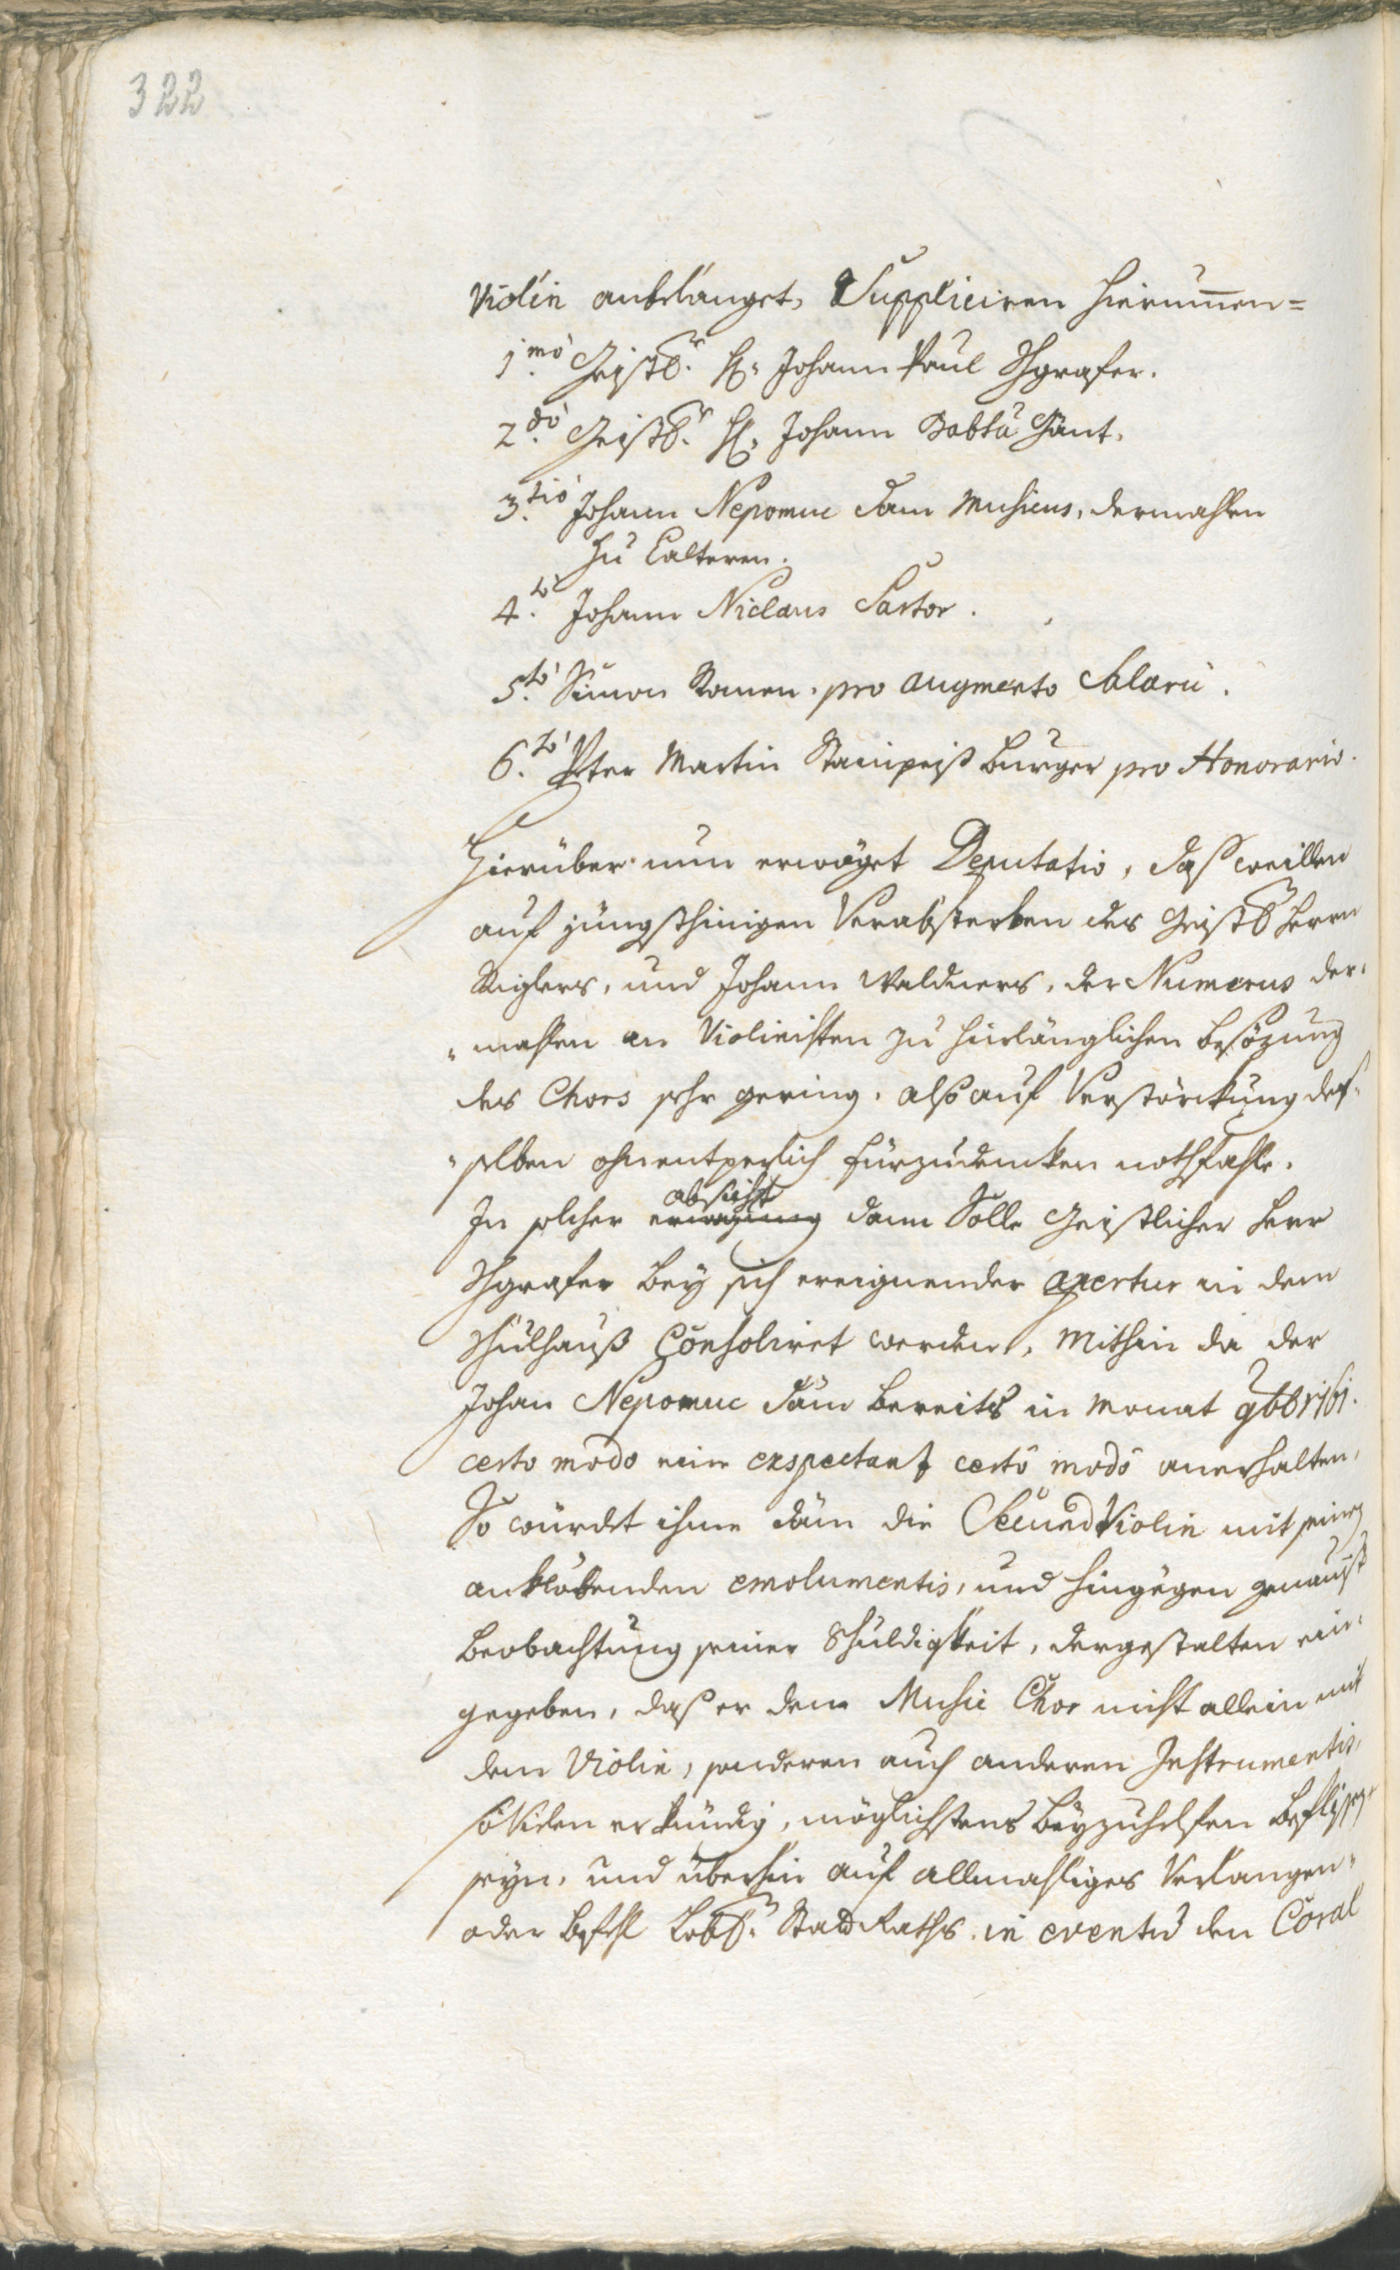 322
Violin anbelanget, Suppliciren hierumen=
1.mo Geistlr. H: Johann Paul Schgrafer.
2.do Geistlr. H: Johann Babta Gänt.
3.tio Johann Nepomuc Dam Musicus, dermahlen
zu Calteren.
4.to Johann Niclaus Sartor.
5.to Simon Ramen. pro augmento Salarii.
6.to Peter Martin Stainpeiß Burger pro Honorario.
Hierüber nun erwöget Deputatio, daß weillen
auf jüngsthinigen Verabsterben des Geistl. Herrn
Riglers, und Johann Waldners, der Numerus der„
„mahlen an Violinisten zu hinlänglichen besözung
des Chors sehr gering, also auf Verstörckung des„
„selben ohnentperlich fürzudencken nothfahle.
In solcher erwegung absicht dann Solle Geistlicher Herr
Schgrafer bey sich ereignender apertur in dem
Schulhauß Consoliret werden, mithin da der
Johan Nepomuc Däm bereits in Monat 9bbris
certo modo eine exspectanz certô modô anerhalten,
So würdet ihme Däm die Secund Violin mit seinen
anklebenden emolumentis, und hingegen genauist
beobachtung seiner Schuldigkeit, dergestalten ein„
gegeben, daß er dem Music Chor nicht allein mit
dem Violin, sonderen auch anderen Instrumentis,
so Viden er kündig, möglichstens beyzuhelfen beflissen
seyn, und überhin auf allmahliges Verlangen„
oder befehl Löbl. Stadt Raths in eventu den Coral